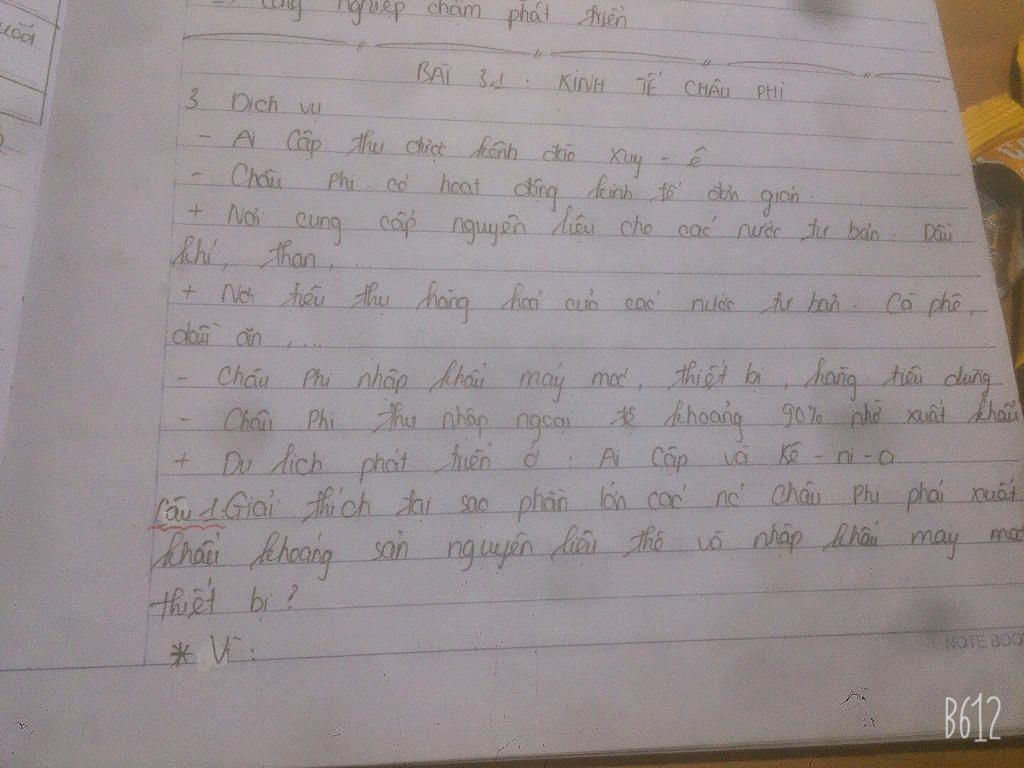 công nghiệp chậm phát triển
BÀI 31. KINH TẾ CHÂU PHI
3 Dịch vụ
- Ai Cập thu được kênh đào xuy-ê
- Châu Phi có hoạt động kinh tế đơn giản.
+ Nơi cung cấp nguyên liệu cho các nước tư bản. Dầu
khí, than, ...
+ Nơi tiêu thụ hàng hoá của các nước tư bản. Cà phê,
dầu ăn, ...
- Châu Phi nhập khẩu máy móc, thiết bị, hàng tiêu dùng
- Châu Phi thu nhập ngoại tệ khoảng 90% nhờ xuất khẩu
+ Du lịch phát triển ở: Ai Cập và Kê-ni-a
Câu 1. Giải thích tại sao phần lớn các nc Châu Phi phải xuất
khẩu khoáng sản nguyên liệu thô và nhập khẩu máy móc
thiết bị?
* Vì:
NOTE BOO
B612